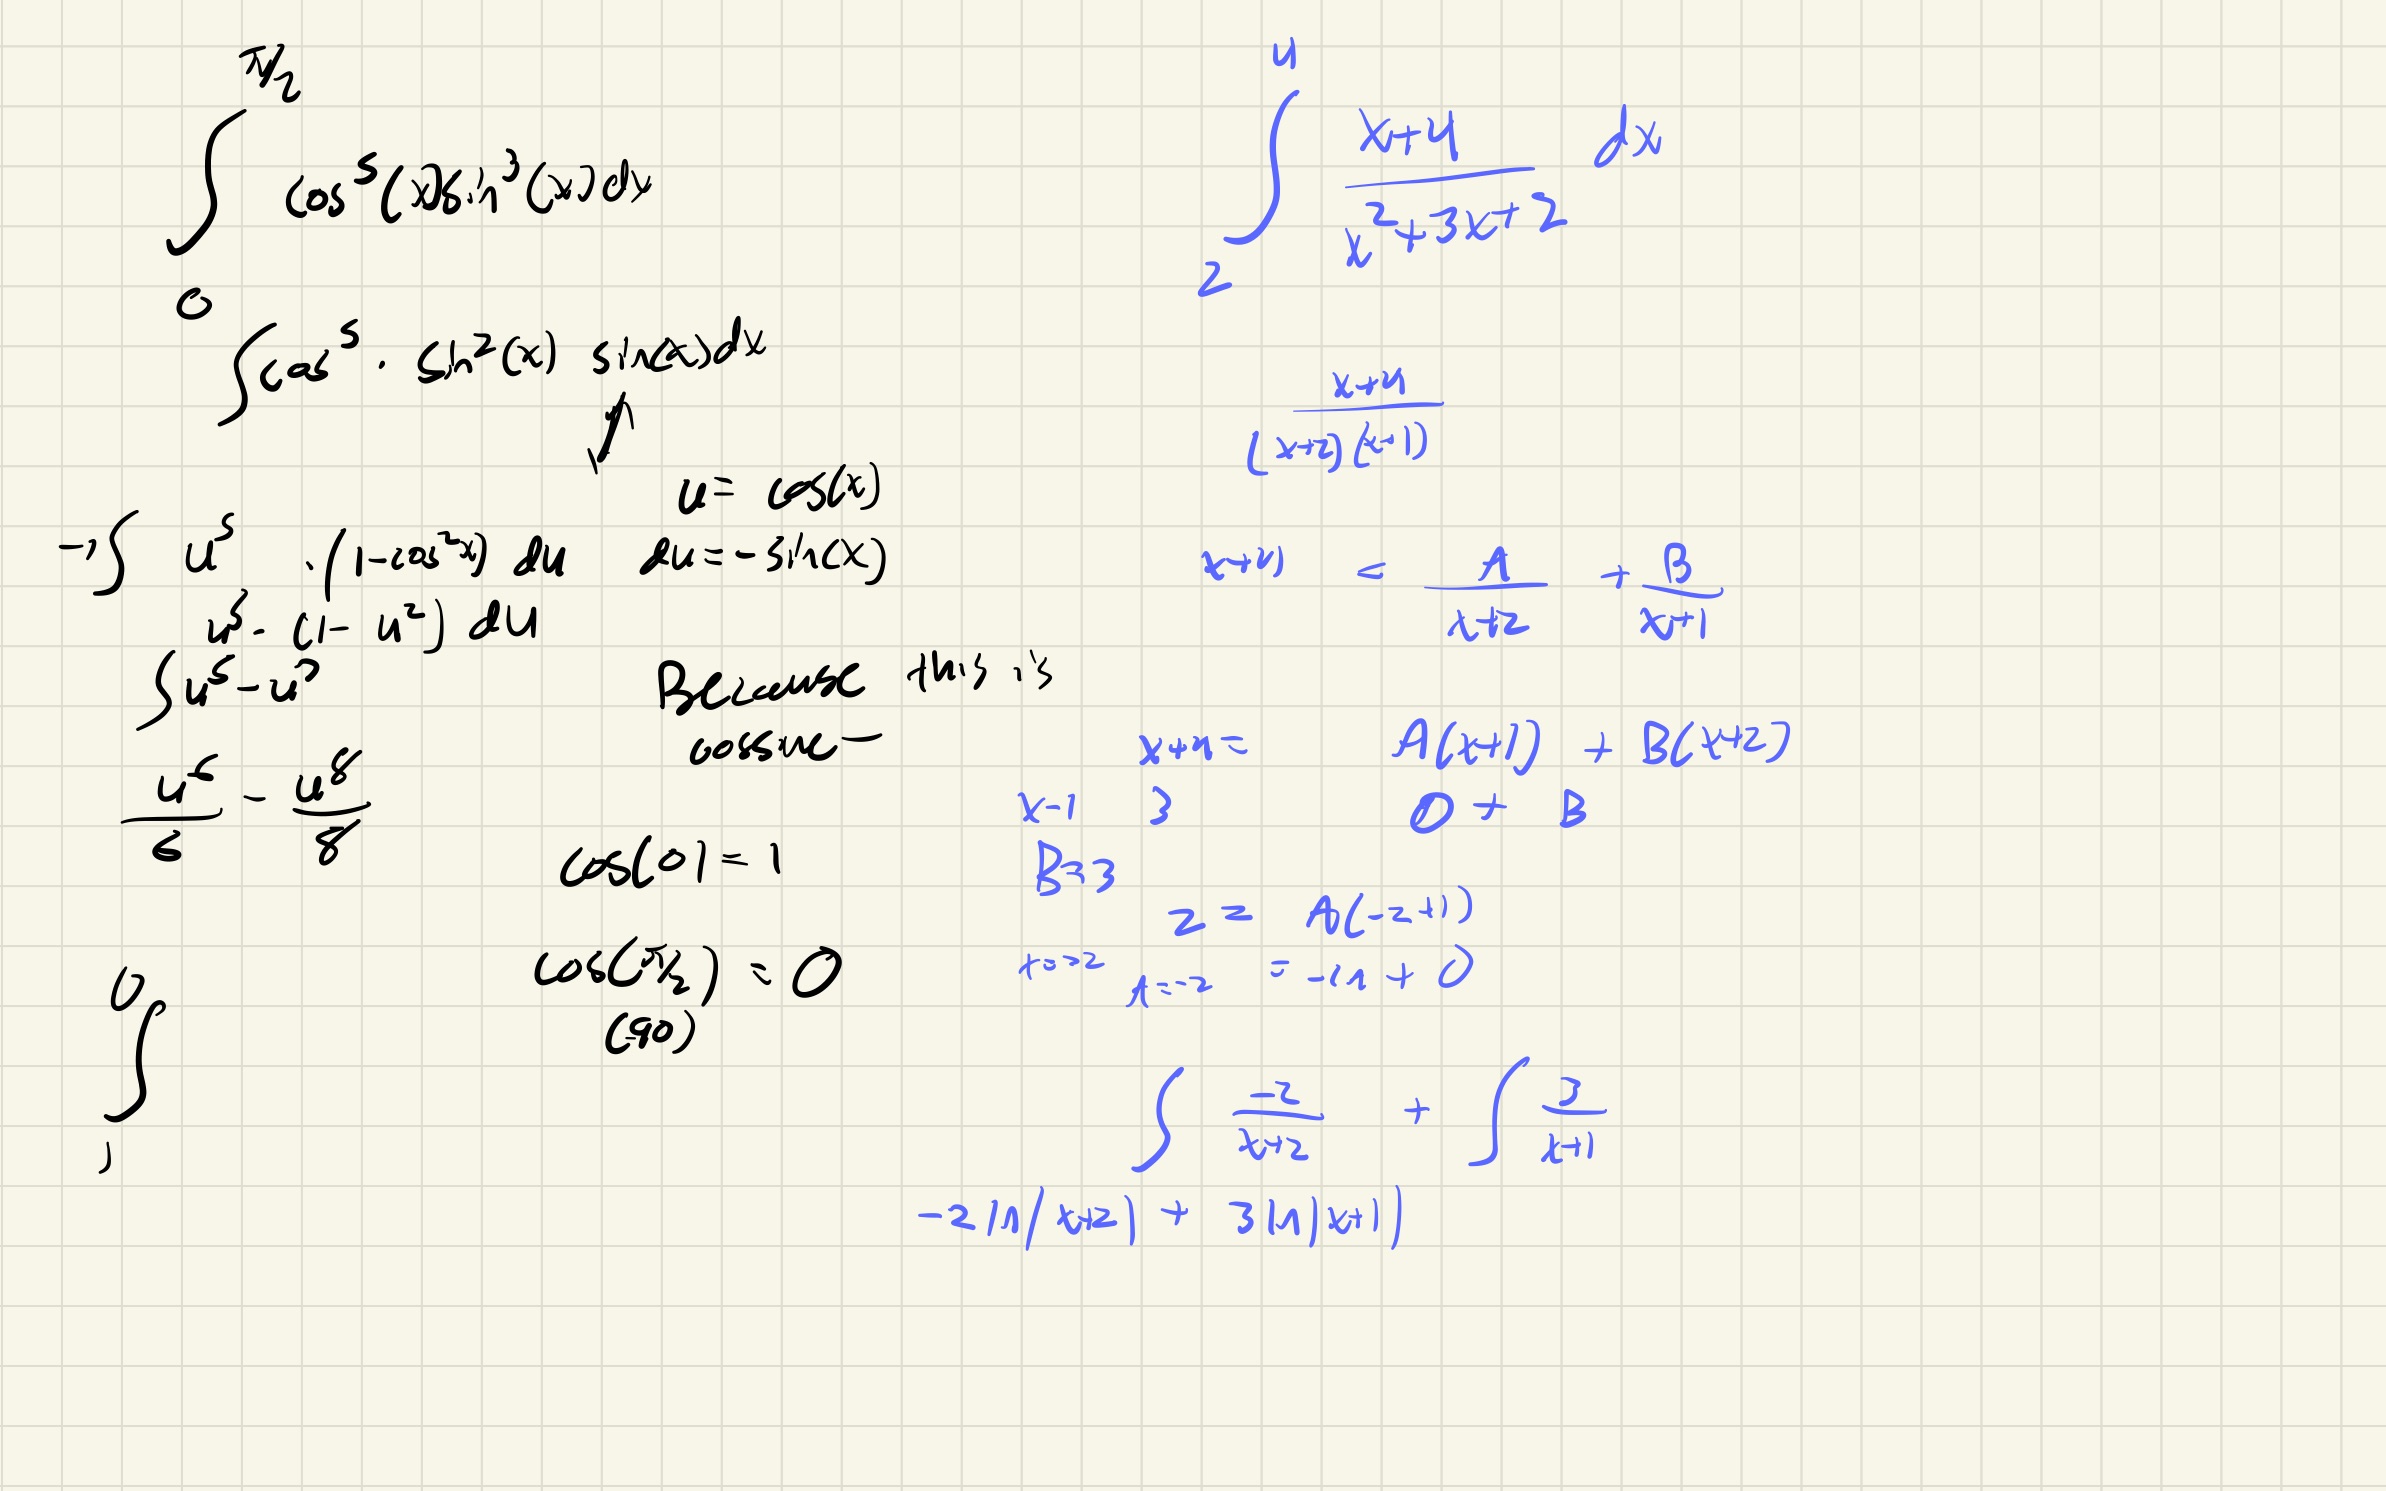 π/2
∫ cos⁵(x)sin³(x)dx
0
∫cos⁵ · sin²(x) sin(x)dx
u= cos(x)
-∫ u⁵ ·(1-cos²x) du du=-sin(x)
u⁵- (1- u²) du
∫u⁵-u⁷
Because this is
cosine-
u⁶/6 - u⁸/8
cos(0)=1
cos(π/2) =0
(=90)
0
∫
1
4
∫ x+4/x²+3x+2 dx
2
x+4/(x+2)(x+1)
x+4 = A/x+2 + B/x+1
x+4= A(x+1) + B(x+2)
x-1 3 0+ B
B=3
2= A(-2+1)
x=-2 A=-2 =-1A+0
∫ -2/x+2 + ∫ 3/x+1
-2ln|x+2| + 3ln|x+1|